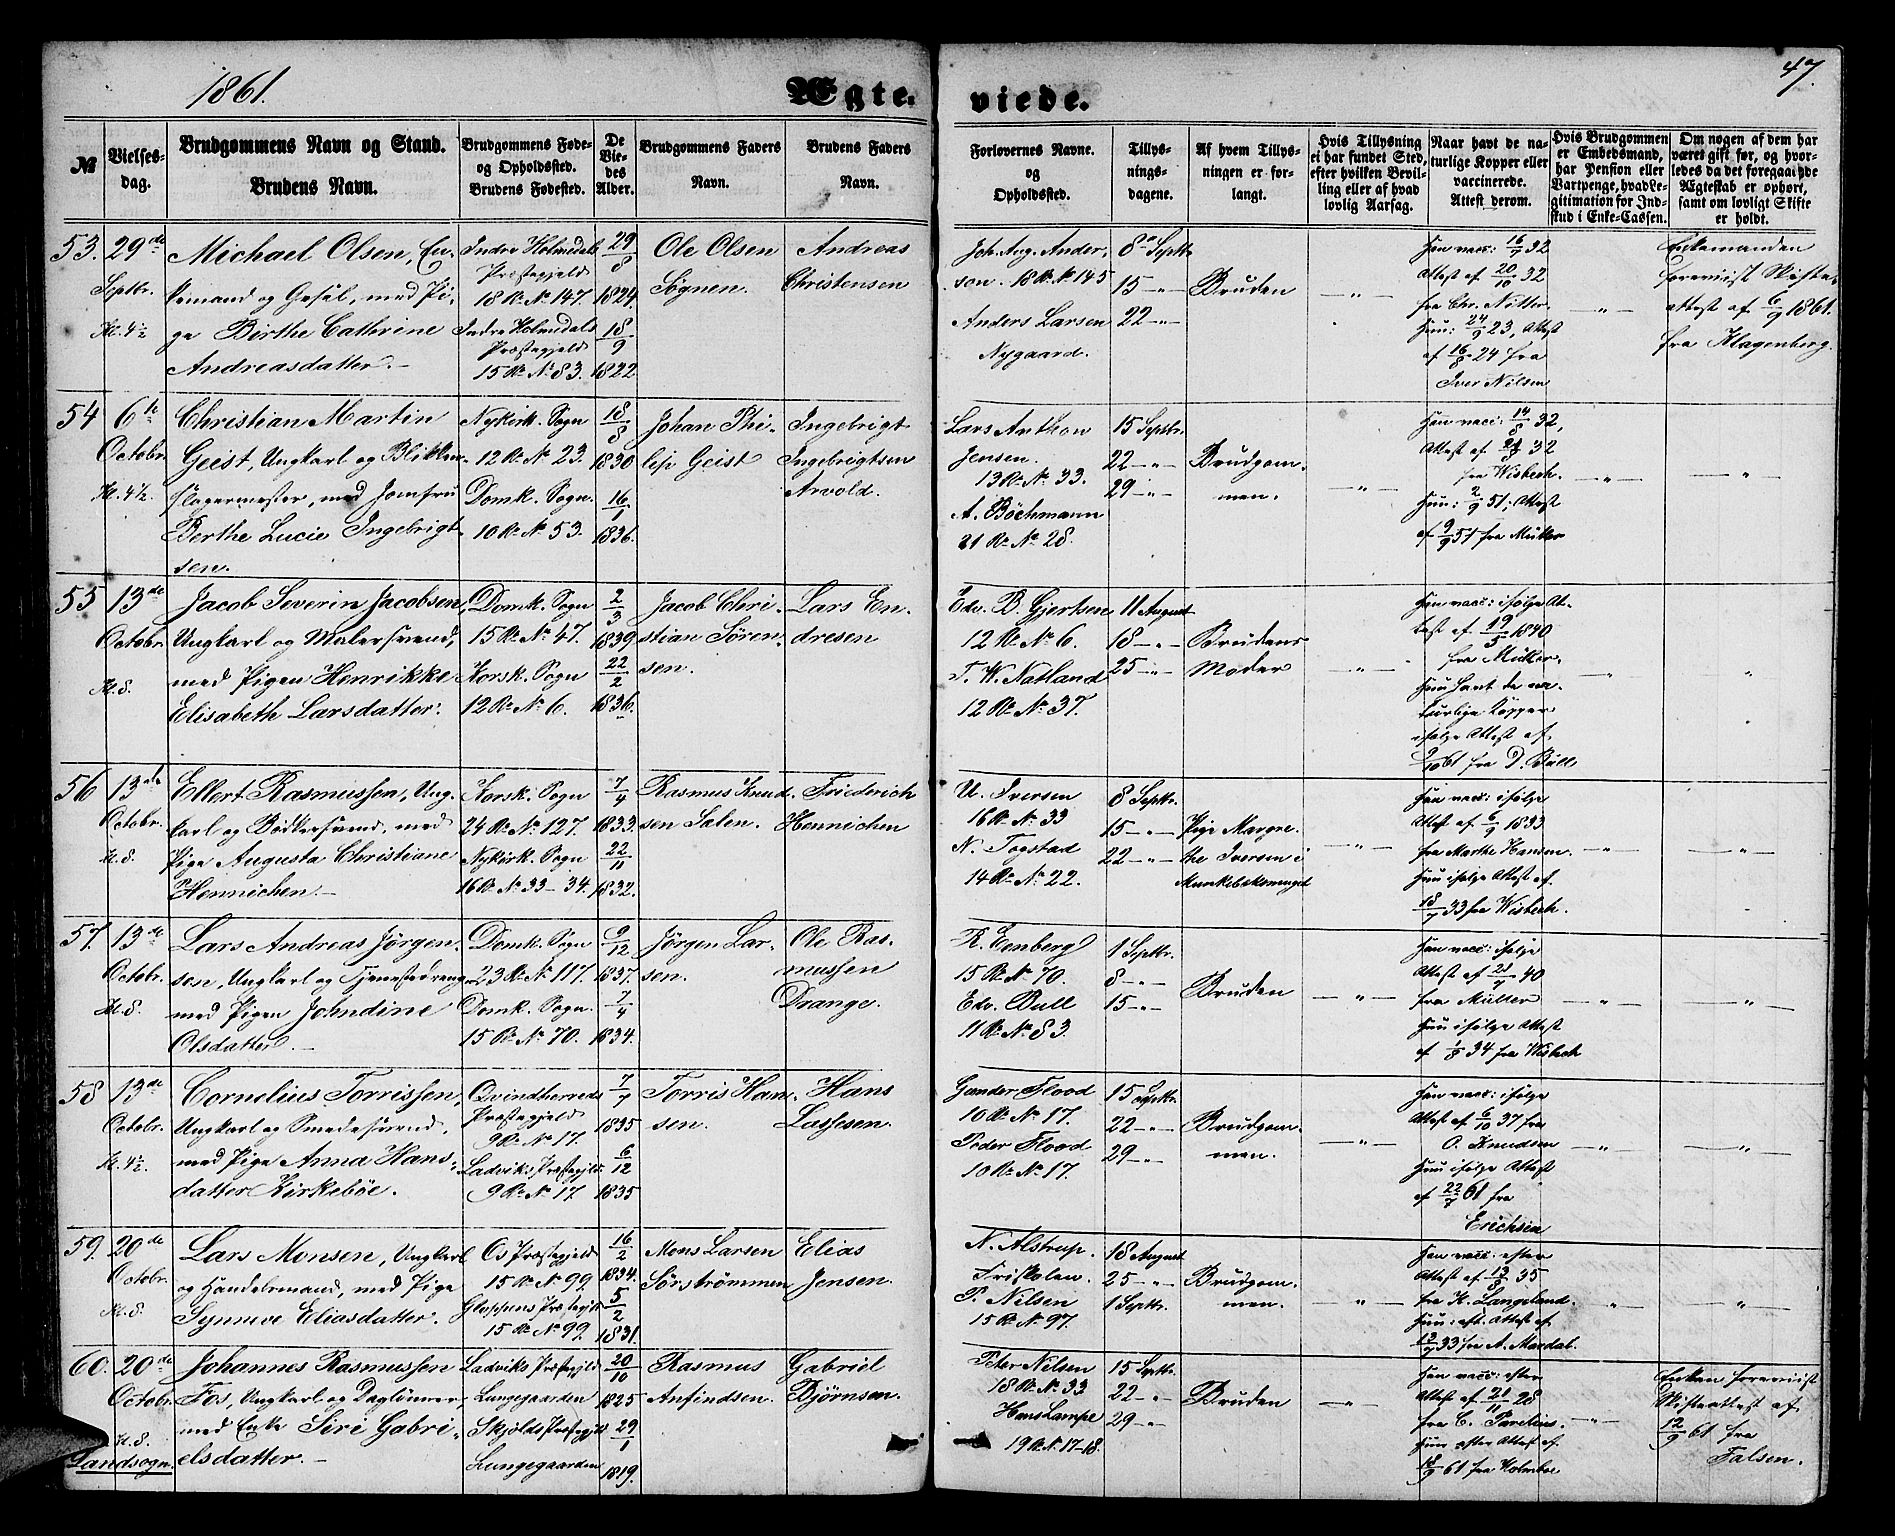 1861.
Ægte-
viede.
47.
№
Vielses-
dag.
Brudgommens Navn og Stand.
Brudens Navn.
Brudgommens Føde-
og Opholdssted.
Brudens Fødested.
De
Vie-
des
Alder.
Brudgommens Faders
Navn.
Brudens Faders
Navn.
Forlovernes Navne.
og
Opholdssted.
Tillys-
nings-
dagene.
Af hvem Tillys-
ningen er for-
langt.
Hvis Tillysning
ei har fundet Sted,
efter hvilken Bevil-
ling eller af hvad
lovlig Aarsag.
Naar havt de na-
turlige Kopper eller
vaccinerede.
Attest derom.
Hvis Brudgommen
er Embedsmand,
har Pension eller
Vartpenge, hvad Le-
gitimation for Ind-
skud i Enke-Cassen.
Om nogen af dem har
været gift før, og hvor-
ledes da det foregaaende
Ægteskab er ophørt,
samt om lovligt Skifte
er holdt.
53.
29de
Septbr.
Kl. 4½
Michael Olsen, En-
kemand og Gesel, med Pi-
ge Birthe Cathrine
Andreasdatter.
Indre Holmedals
Præstegjeld
18 R. № 147.
Indre Holmedals
Præstegjeld
15 R. № 83.
29/8
1824.
18/9
1822.
Ole Olsen
Søgnen.
Andreas
Christensen
Joh. Aug. Ander-
sen. 18 R. № 145
Anders Larsen
Nygaard.
8de Septbr.
15 —"—
22 —"—
Bruden
—"—
Han vacc: 16/7 32
Attest af 20/10 32
fra Chr. Nitter.
Hun: 24/9 23, Attest
af 16/8 24 fra
Iver Nilsen
—"—
Enkemanden
foreviist Skifte-
attest af 6/9 1861.
fra Klagenberg.
54
6te
Octobr.
Kl. 4½.
Christian Martin
Geist, Ungkarl og Blikken-
slagermester, med Jomfru
Berthe Lucie Ingebrigt-
sen.
Nykirk. Sogn
12 R. № 23.
Domk. Sogn.
10 R. № 53.
18/8
1830
16/1
1836.
Johan Phi-
lip Geist
Ingebrigt
Ingebrigtsen
Arvold.
Lars Anthon
Jensen.
13 R. № 33.
A. Böchmann
21 R. № 28.
15 Septbr.
22 —"—
29 —"—
Brudgom-
men.
—"—
Han vacc: 14/8 32,
Attest af 32
fra Wisbech.
Hun: 2/9 51; Attest
af 9/9 51 fra Müller
—"—
—"—
55
13de
Octobr.
Kl. 8.
Jacob Severin Jacobsen,
Ungkarl og Malersvend,
med Pigen Henrikke
Elisabeth Larsdatter.
Domk. Sogn
15 R. № 47.
Korsk. Sogn
12 R. № 6.
2/3
1839
22/2
1836.
Jacob Chri-
stian Sören-
sen.
Lars En-
dresen
Edv. B. Gjertsen
12 R. № 6.
T. W. Natland
12 R. № 37.
11 August
18 —"—
25 —"—
Brudens
Moder
—"—
Han vacc: ifølge At-
test af 19/5 1840
fra Müller.
Hun havt de na-
turlige Kopper
ifølge Attest af
2/10 61 fra D. Bull
—"—
"
56
13de
Octobr.
Kl. 8.
Ellert Rasmussen, Ung-
karl og Bødkersvend, med
Pige Augusta Christiane
Hennichen.
Korsk. Sogn
24 R. № 127.
Nykirk. Sogn
16 R. № 33–34.
7/4
1833.
22/11
1832.
Rasmus Knud-
sen Salen.
Friederich
Hennichen
U. Iversen
16 R. № 33
N. Togstad
14 R. № 22.
8 Septbr.
15 —"—
22 —"—
Pige Margre-
the Iversen i
Munkebeksmuget
—"—
Han vacc: ifølge
Attest af 6/9 1833
fra Marthe Hansen.
Hun ifølge Attest af
18/7 33 fra Wisbech.
—"—
—"—
57.
13de
Octobr.
Kl. 8.
Lars Andreas Jörgen-
sen, Ungkarl og Tjenestedreng
med Pigen Johndine
Olsdatter.
Domk. Sogn
23 R. № 117.
Domk. Sogn.
15 R. № 70.
9/12
1837.
7/4
1834.
Jörgen Lar-
sen.
Ole Ras-
mussen
Drange.
R. Eenberg
15 R. № 70.
Edv. Bull
11 R. № 83.
1 Septbr.
8 —"—
15 —"—
Bruden
—"—
Han vacc: ifølge
Attest af 28/7 40
fra Müller
Hun ifølge Attest
af 1/8 34 fra Wisbech
—"—
—"—
58
13de
Octobr.
Kl. 4½.
Cornelius Torrissen,
Ungkarl og Smedesvend,
med Pige Anna Hans-
datter Kirkebøe.
Qvindherreds
Præstegjeld
9 R. № 17.
Ladviks Præstegjeld
9 R. № 17
7/7
1835
6/12
1835
Torris Han-
sen.
Hans
Lassesen.
Gunder Flood
10 R. № 17.
Peder Flood
10 R. № 17.
15 Septbr.
22 —"—
29 —"—
Brudgom-
men.
—"—
Han vacc: ifølge
Attest af 6/10 37 fra
O. Knudsen
Hun ifølge Attest
af 22/7 61 fra
Erichsen
—"—
—"—
59.
20de
Octobr.
Kl. 8.
Lars Monsen, Ungkarl
og Handelsmand, med Pige
Synneve Eliasdatter.
Os Præstegjeld
15 R. № 99.
Gloppens Præstegjeld
15 R. № 99.
16/2
1834.
5/2
1831.
Mons Larsen
Sörströmmen
Elias
Jensen.
N. Alstrup.
Friskolen.
P. Nilsen
15 R. № 97.
18 August
25 —"—
1 Septbr.
Brudgom-
men.
—"—
Han vacc: efter
Attest af 13/8 35
fra K. Langeland.
Hun: eft. Attest af
33 fra A. Mardal.
"
—"—
60.
20de
Octobr.
Kl. 8.
Landsogn.
Johannes Rasmussen
Fos, Ungkarl og Daglönner
med Enke Siri Gabri-
elsdatter.
Ladviks Præstegjeld
Lungegaarden
Skjolds Præstegjeld
Lungegaarden
20/10
1825
29/1
1819.
Rasmus
Anfindsen.
Gabriel
Bjørnsen.
Peter Nilsen
18 R. № 33
Hans Lampe
19 R. № 17–18.
15 Septbr.
22 —"—
29 —"—
Bruden
—"—
Han vacc: efter
Attest af 21/11 28
fra C. Parelius.
Hun efter Attest af
18/9 61 fra Holmboe
—"—
Enken foreviist
Skifteattest af
12/9 61 fra
Falsen.